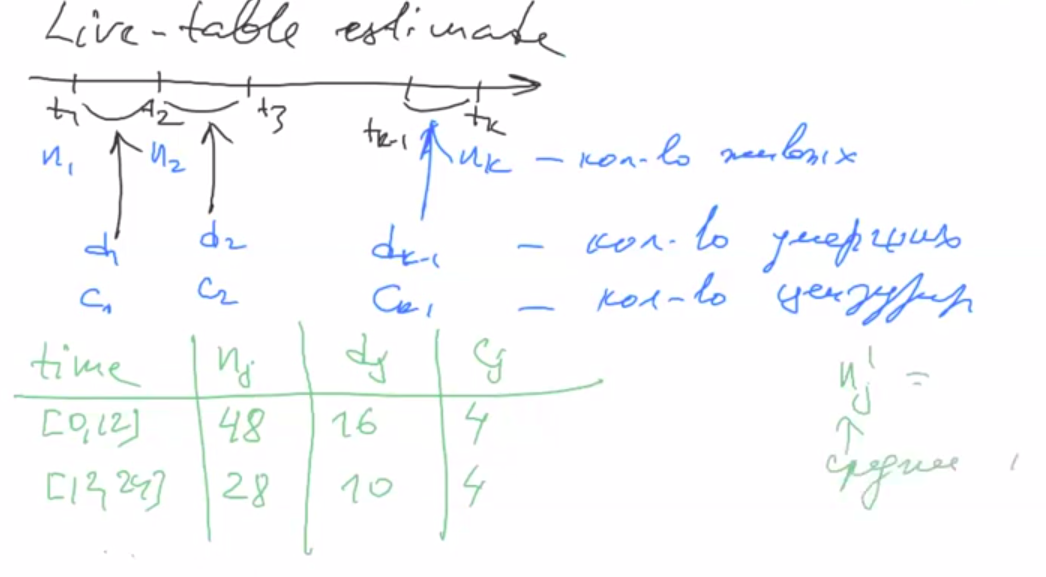 Live-table estimate
t₁ t₂ t₃ tₖ₋₁ tₖ
n₁ n₂ nₖ – кол-во живых
d₁ d₂ dₖ₋₁ – кол-во умерших
c₁ c₂ cₖ₋₁ – кол-во цензурир
time nⱼ dⱼ cⱼ
[0,12] 48 16 4
[12,24] 28 10 4
...
nⱼ' =
среднее